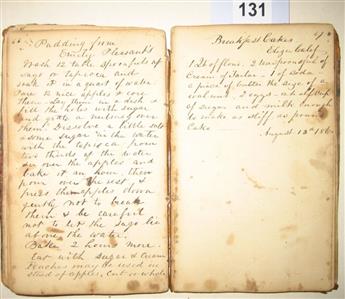 131
Pudding from
Emily Pleasants
Wash 12 table spoonfuls of
sago or tapioca and
soak it in a quart of water
Pare 12 nice apples & core
them. Lay them in a dish &
fill the holes with sugar
and grate a nutmeg over
them. Dissolve a little
sugar in the water
with the tapioca pour
two thirds of the water
over the apples and
bake it an hour, then
pour over the rest &
press the apples down
gently not to break
them & be careful
not to let the sago be
above the water
Bake 2 hours more.
Eat with sugar & cream
Peaches may be used in
stead of apples. Cut or whole
Breakfast Cakes
Eliza
1 lb of flour. 2 teaspoonful of
Cream of Tartar - 1 of Soda
a piece of butter the size of a
walnut - 2 eggs - a cup
of sugar and milk enough
to make as stiff as pound
Cake
August 13th